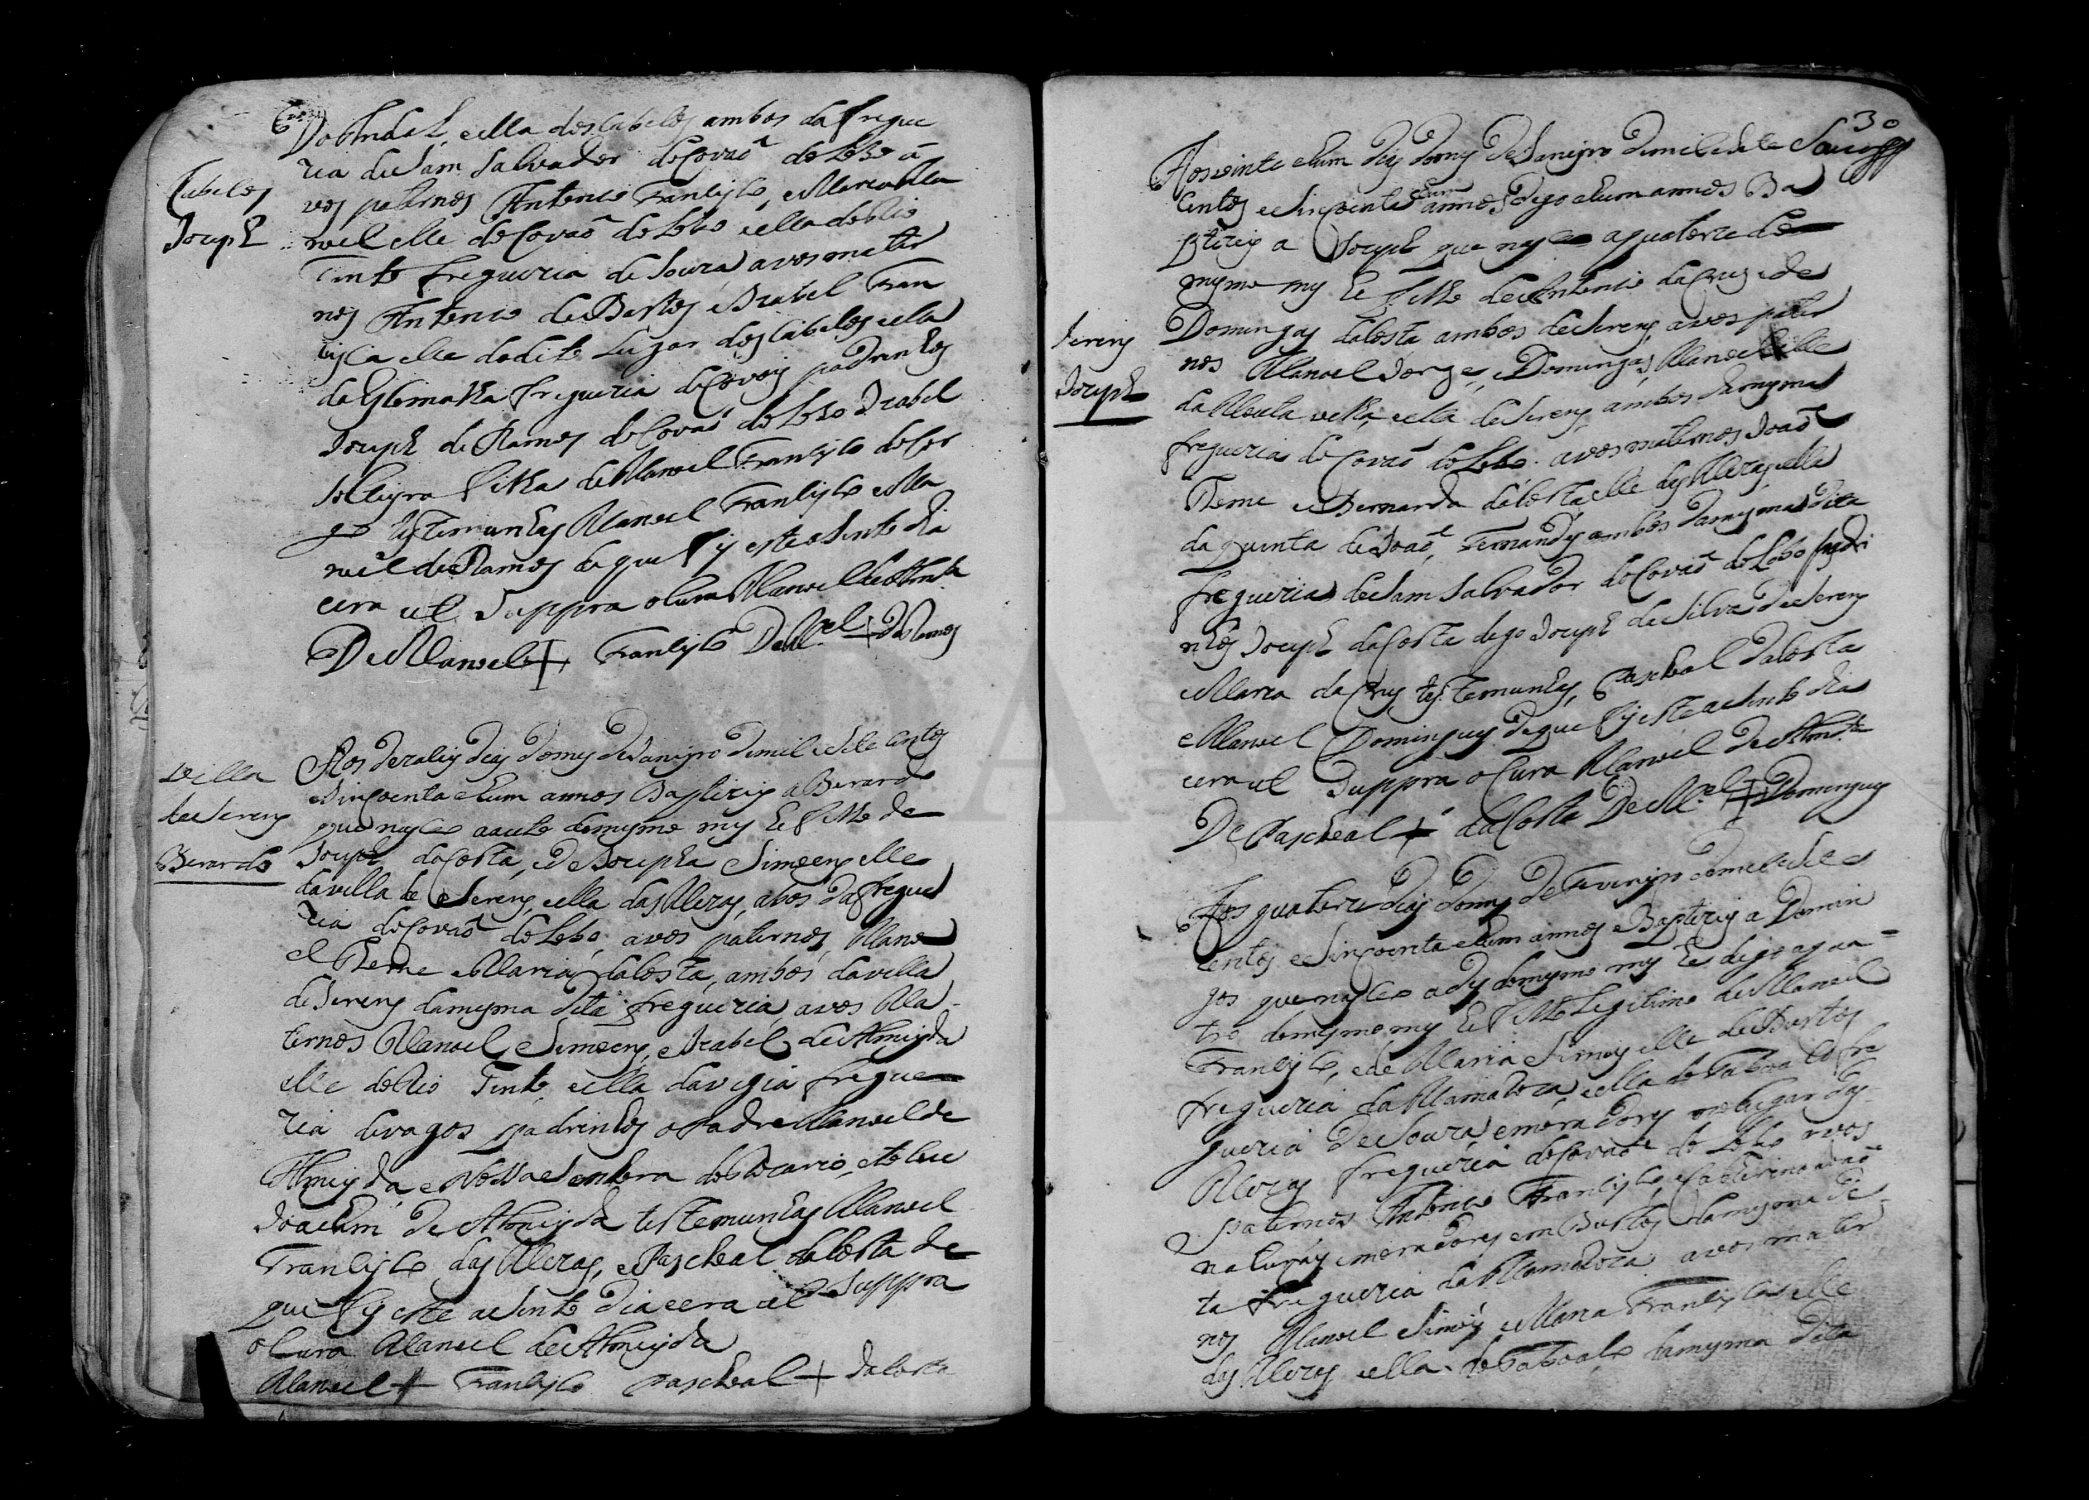 Cabelos
Joseph
do Andal, e ella dos Cabelos ambos da fregue
zia de Sam Salvador de Covaõ do Lobo a
vos paternos Antonio Francisco, e Maria Ma
noel elle de Covaõ do Lobo e ella do Rio
Tinto freguezia de Souza avos mater
nos Antonio de Bastos e Izabel Fran
cisca elle do dito Lugar dos Cabelos e ella
da freguezia de Covois padrinhos
Joseph de Ramos de Covaõ do Lobo Izabel
solteyra filha de Manoel Francisco
testemunhas Manoel Francisco e Ma
noel de Ramos de que fis este asento dia
e era ut Suppra o Cura Manoel de Almda
De Manoel + Francisco De Mel + de Ramos
Villa
de Sereis
Berardo
Aos dezaseis dias do mes de Janeyro de mil e sete centos
e sincoenta e hum annos Baptizei a Berardo
que nasceo aoute do mesmo mes he filho de
Joseph da Costa, e de Josepha Simoens elle
da villa de Sereis, e ella das Mezas, abos da fregue
zia de Covaõ do Lobo, avos paternos, Mano
el Reme e Maria da Costa, ambos da villa
de Sereis da mesma dita freguezia avos Ma
ternos Manoel Simoens, e Izabel de Almeyda
elle do Rio Tinto, e ella da vigia fregue
zia de vagos padrinhos o Padre Manoel de
Almeyda, e Nossa Senhora do Rozario, e tocou
Joachim de Almeyda testemunhas Manoel
Francisco das Mezas, e Paschoal da Costa de
que fis este asento dia e era ut Suppra
o Cura Manoel de Almeyda
Manoel + Francisco Paschoal + da Costa
30
Sereis
Joseph
Aos vinte e hum dias do mes de Janeyro de mil e sete
centos e sincoenta e hum annos digo e hum annos Ba
ptizei a Joseph que nasceo a quatorze do
mesmo mes he filho de Antonio da Cruz e de
Domingas da Costa ambos de Sereis, avos pater
nos Manoel Jorge, e Domingas Manoel elle
da Menta velha, e ella de Sereis ambos da mesma
freguezia de Covaõ do Lobo. avos maternos Joaõ
Reme e Bernarda da Costa elle das Mezas, e ella
da quinta de Joaõ Fernandes ambos da mesma dita
freguezia de Sam Salvador de Covaõ do Lobo padri
nhos Joseph da Costa digo Joseph da Silva de Sereis
e Maria da Cruz, testemunhas, Paschoal da Costa
e Manoel Domingues de que fis este asento dia
e era ut Suppra o Cura Manoel de Almda
De Paschoal + da Costa De Mel + Domingues
Aos quatorze dias do mes de Fevereyro de mil e sete
centos e sincoenta e hum annos Baptizei a Domin
gos que nasceo a des do mesmo mes he digo a qua
tro do mesmo mes he filho Legitimo de Manoel
Francisco, e de Maria Simois elle de Bustos
freguezia da Mamaroza, e ella do Taboaço fre
guezia de Souza, e moradores no lugar das
Mezas freguezia de Covaõ do Lobo avos
paternos Antonio Francisco, e Catherina
naturais e moradores em Bustos da mesma di
ta freguezia da Mamaroza avos mater
nos Manoel Simois e Maria Francisca elle
das Mezas e ella do Taboaço da mesma dita